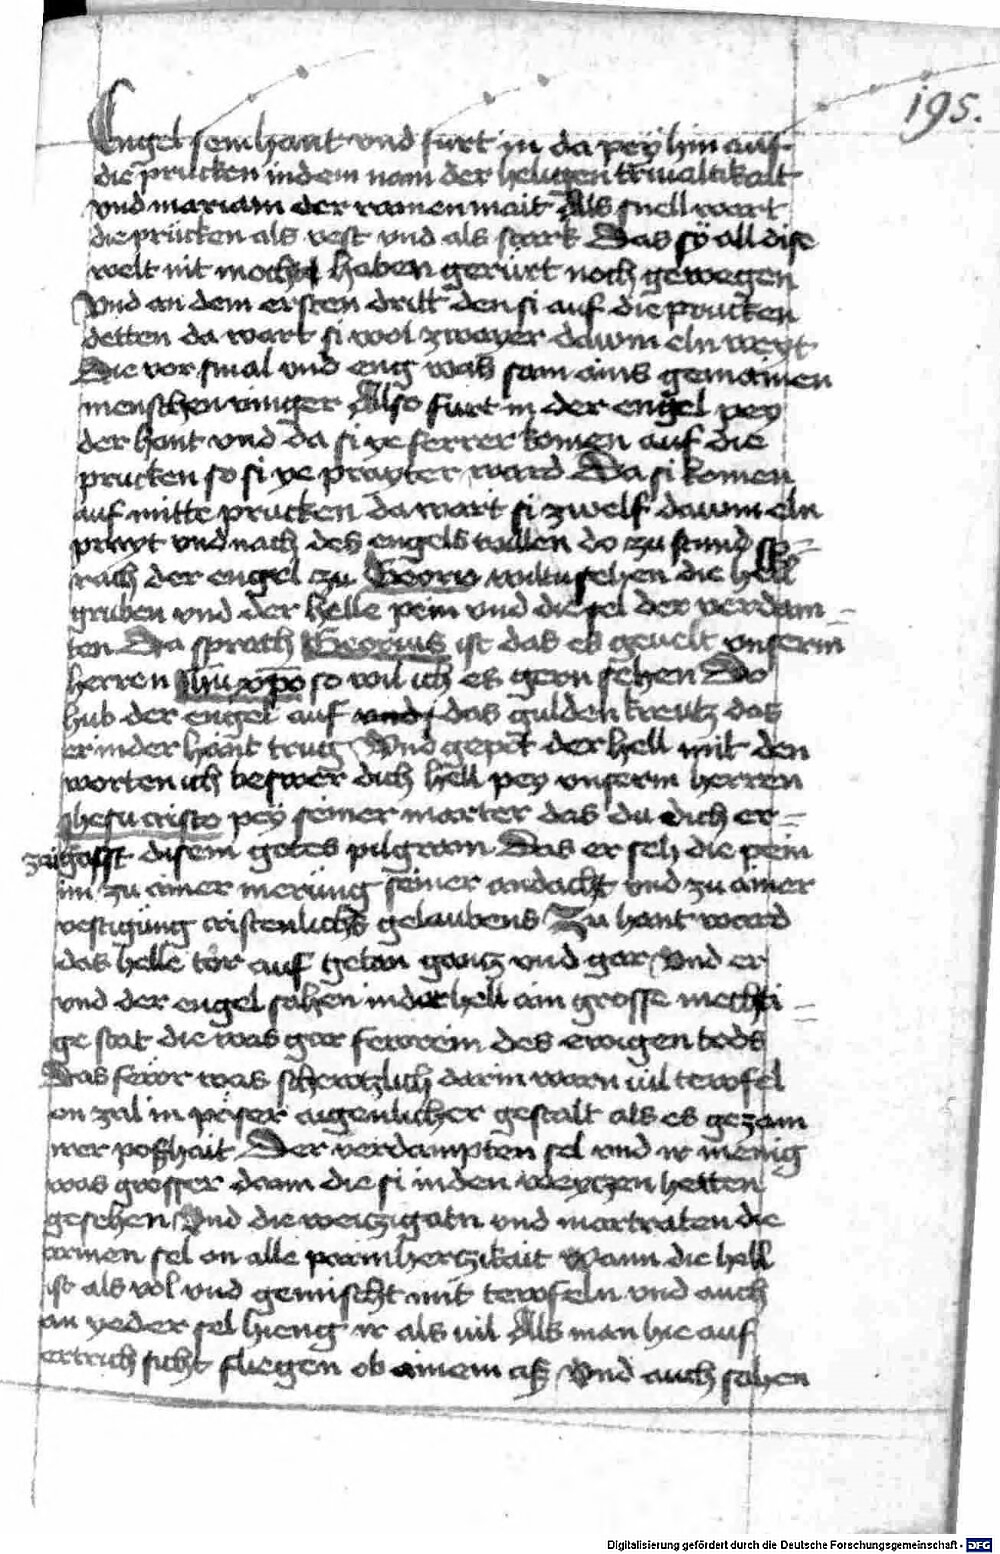 195.
Engel sein hant vnd furt in da pey hin auf
die prucken in dem nam der heiligen triualtikait
vnd mariam der rainen mait Als snell wart
die prücken als vest vnd als stark Das sÿ all dise
welt nit mocht haben gerürt noch gewegen
Vnd an dem ersten dritt den si auf die prucken
detten da wart si wol zwayer dawm eln weyt
Die vor smal vnd eng was sam ains gemainen
menschen vinger Also furt in der engel pey
der hant vnd da si ye ferrer komen auf die
prucken so si ye prayter ward Da si komen
auf mitte prucken da wart si zwelf dawm eln
prayt vnd nach des engels willen do zu stund sp=
rach der engel zu Georio wiltu sehen die hell
gruben vnd der helle pein vnd die sel der verdam=
ten Da sprach Georius ist das es geuelt vnserm
herren Jhu xpo so wil ich es gern sehen Do
hub der engel auf vnd das gulden kreutz das
er in der hant trug Vnd gepot der hell mit den
worten ich beswer dich hell pey vnserm herren
Jhesu cristo pey seiner marter das du dich er=
zaigst disem gotes pilgram Das er seh die pein
im zu ainer merüng seiner andacht vnd zu ainer
vestigüng cristenlichs gelaubens Zu hant ward
das helle tor auf getan gancz vnd gar Vnd er
vnd der engel sahen in der hell ain grosse mechti=
ge stat die was gar fewrein des ewigen tods
Das fewr was schewtzlich darin warn vil tewfel
on zal in pöser augenlicher gestalt als es gezam
irer poßhait Der verdampten sel vnd ir menig
was grosser dann die si in den weyczen hetten
gesehen Vnd die weiczigatn vnd martraten die
armen sel on alle parmherczikait Wann die hell
ist als vol vnd gemischt mit tewfeln vnd auch
an yeder sel hieng ir als vil Als man hie auf
ertrich sicht fliegen ob ainem aß Vnd auch sahen
Digitalisierung gefördert durch die Deutsche Forschungsgemeinschaft - DFG